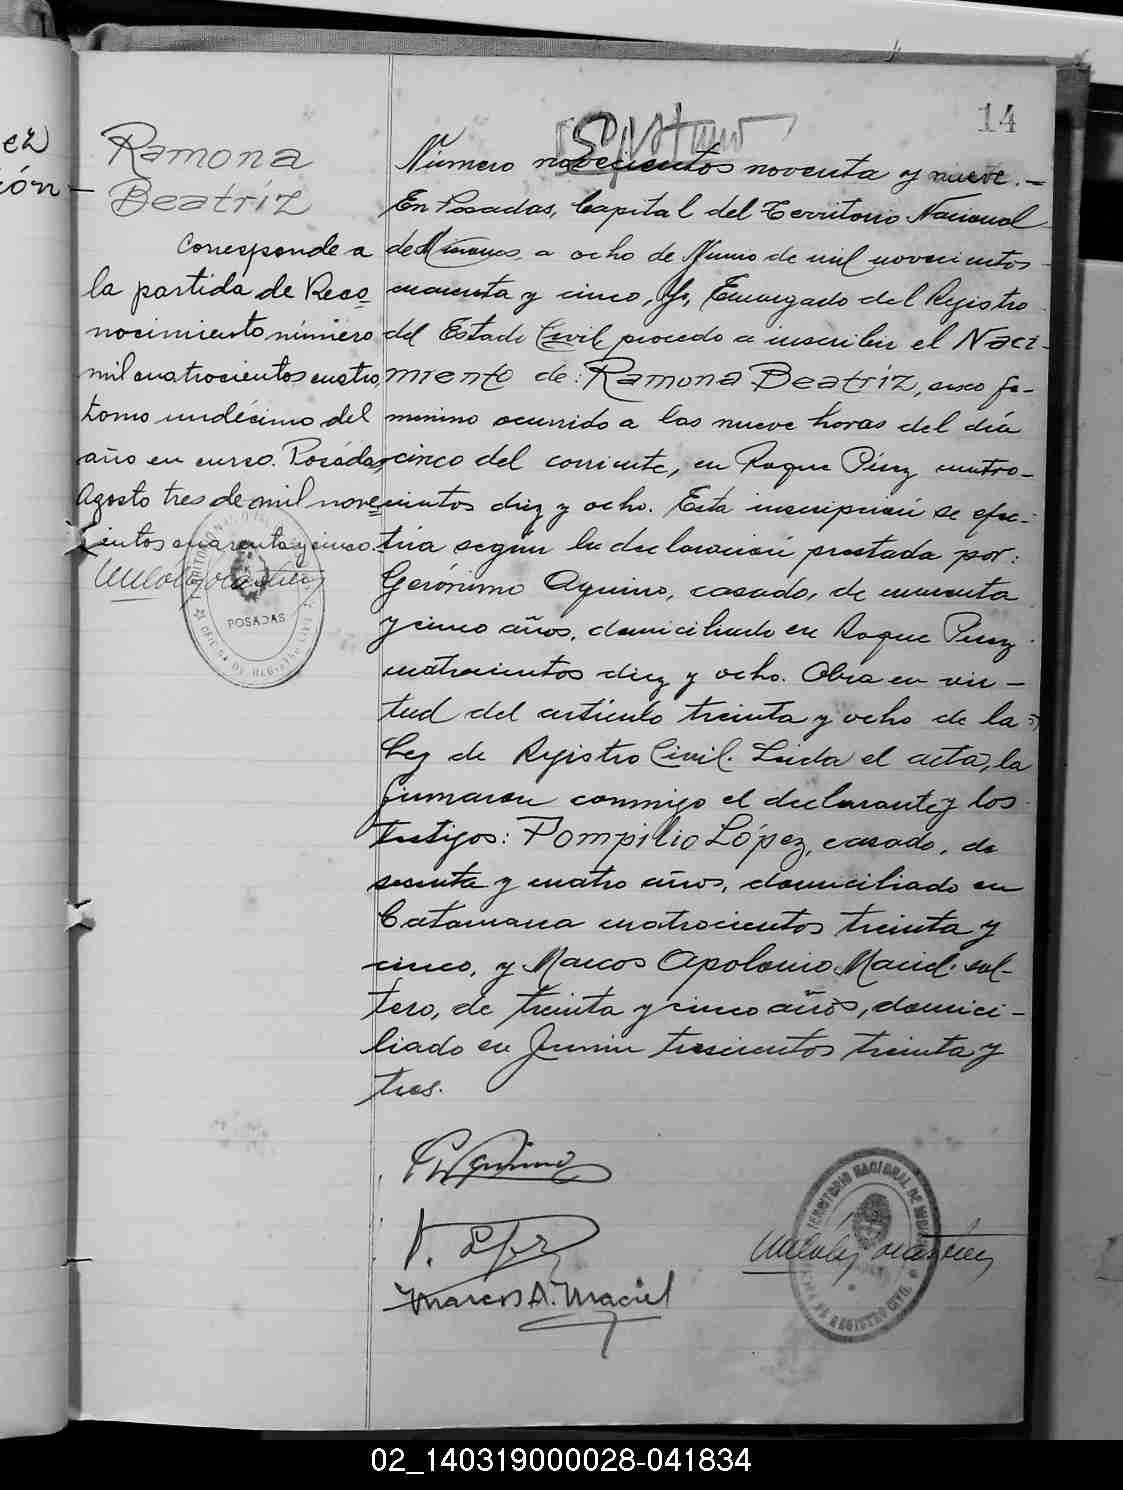 14
Ramona
Beatríz
Corresponde a
la partida de Reco=
nocimiento número
mil cuatrocientos cuatro
tomo undécimo del
año en curso. Posadas
Agosto tres de mil nove=
cientos cuarenta y cinco.
POSADAS
Número novecientos noventa y nueve.—
En Posadas, Capital del Territorio Nacional
de Misiones, a ocho de Junio de mil novecientos
cuarenta y cinco, Yo, Encargado del Registro
del Estado Civil procedo a inscribir el Naci-
miento de: Ramona Beatríz, sexo fe-
menino ocurrido a las nueve horas del día
cinco del corriente, en Roque Pérez cuatro-
cientos diez y ocho. Esta inscripción se efec-
túa según la declaración prestada por:
Gerónimo Aquino, casado, de cuarenta
y cinco años, domiciliado en Roque Perez
cuatrocientos diez y ocho. Obra en vir-
tud del artículo treinta y ocho de la
Ley de Registro Civil. Leida el acta, la
firmaron conmigo el declarante y los
testigos: Pompilio López, casado, de
sesenta y cuatro años, domiciliado en
Catamarca cuatrocientos treinta y
cinco, y Marcos Apolonio Maciel, sol-
tero, de treinta y cinco años, domici-
liado en Junin trescientos treinta y
tres.
Marcos A. Maciel
TERRITORIO NACIONAL DE MISIONES
OFICINA DE REGISTRO CIVIL
02_140319000028-041834